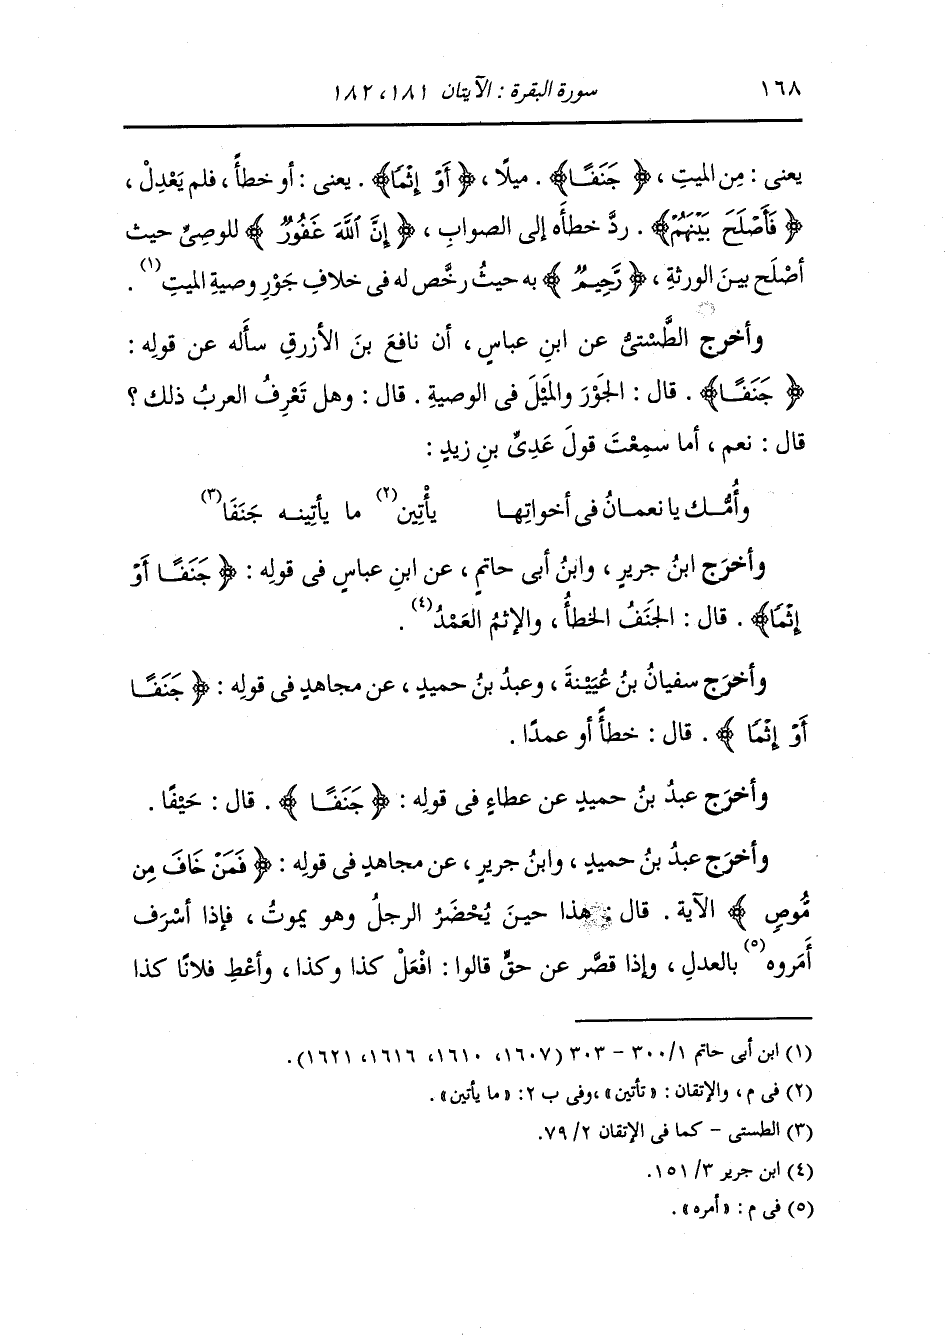 ١٦٨ سورة البقرة : الآيتان ١٨١، ١٨٢
يعنى : مِن الميتِ ، ﴿ جَنَفًا ﴾ . ميلًا ، ﴿ أَوْ إِثْمًا ﴾ . يعنى : أو خطأً ، فلم يَعْدِلْ ،
﴿ فَأَصْلَحَ بَيْنَهُمْ ﴾ . ردَّ خطأَه إلى الصوابِ ، ﴿ إِنَّ ٱللَّهَ غَفُورٌ ﴾ للوصِىِّ حيث
أصْلَح بينَ الورثةِ ، ﴿ رَّحِيمٌ ﴾ به حيثُ رخَّص له فى خلافِ جَوْرِ وصيةِ الميتِ(١) .
وأخرج الطَّسْتىُّ عن ابنِ عباسٍ ، أن نافعَ بنَ الأزرقِ سأَله عن قولِه :
﴿ جَنَفًا ﴾ . قال : الجَوْرَ والمَيْلَ فى الوصيةِ . قال : وهل تَعْرِفُ العربُ ذلك ؟
قال : نعم ، أما سمِعْتَ قولَ عَدِىِّ بنِ زيدٍ :
وأُمُّـك يا نعمـانُ فى أخواتِهـا يأْتِين(٢) ما يأتِينـه جَنَفَا(٣)
وأخرَج ابنُ جريرٍ ، وابنُ أبى حاتمٍ ، عن ابنِ عباسٍ فى قولِه : ﴿ جَنَفًا أَوْ
إِثْمًا ﴾ . قال : الجَنَفُ الخطأُ ، والإثمُ العَمْدُ(٤) .
وأخرَج سفيانُ بنُ عُيَيْنةَ ، وعبدُ بنُ حميدٍ ، عن مجاهدٍ فى قولِه : ﴿ جَنَفًا
أَوْ إِثْمًا ﴾ . قال : خطأً أو عمدًا .
وأخرَج عبدُ بنُ حميدٍ عن عطاءٍ فى قولِه : ﴿ جَنَفًا ﴾ . قال : حَيْفًا .
وأخرَج عبدُ بنُ حميدٍ ، وابنُ جريرٍ ، عن مجاهدٍ فى قولِه : ﴿ فَمَنْ خَافَ مِن
مُّوصٍ ﴾ الآية . قال : هذا حينَ يُحْضَرُ الرجلُ وهو يموتُ ، فإذا أسْرَف
أَمَروه(٥) بالعدلِ ، وإذا قصَّر عن حقٍّ قالوا : افْعَلْ كذا وكذا ، وأعْطِ فلانًا كذا
(١) ابن أبى حاتم ٣٠٠/١ – ٣٠٣ (١٦٠٧، ١٦١٠، ١٦١٦، ١٦٢١).
(٢) فى م ، والإتقان : «تأتين» ،وفى ب ٢: «ما يأتين» .
(٣) الطستى – كما فى الإتقان ٢/ ٧٩.
(٤) ابن جرير ٣/ ١٥١.
(٥) فى م : «أمره» .